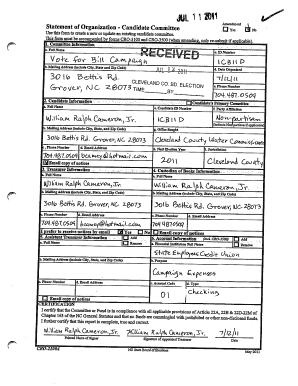 JUL 11 2011
Amendment
Yes No
Statement of Organization - Candidate Committee
Use this form to create a new or update an existing candidate committee.
1. Committee Information
a. Full Name
Vote for Bill Campaign
RECEIVED
JUL 12 2011
CLEVELAND CO. BD ELECTION
TIME BY
b. ID Number
ICB11D
c. Mailing Address (include City, State, and Zip Code)
3016 Bettis Rd.
Grover, NC 28073
d. Date Organized
7/12/11
e. Phone Number
704.487.0509
2. Candidate Information
a. Full Name
William Ralph Cameron, Jr.
Candidate ID Number
ICB11D
Party Affiliation
Non-partisan
Mailing Address (include City, State, and Zip Code)
3016 Bettis Rd. Grover, NC 28073
Office Sought
Cleveland County Water Commissioner
Phone Number
704.487.0509
Email Address
Next Election Year
2011
Jurisdiction
Cleveland County
Email copy of notices
3. Treasurer Information
a. Full Name
William Ralph Cameron, Jr.
4. Custodian of Books Information
a. Full Name
William Ralph Cameron, Jr.
b. Mailing Address (include City, State, and Zip Code)
3016 Bettis Rd. Grover, NC 28073
b. Mailing Address (include City, State, and Zip Code)
3016 Bettis Rd. Grover, NC 28073
c. Phone Number
704.487.0509
d. Email Address
c. Phone Number
704.487.0509
d. Email Address
I prefer to receive notices by email Yes No
Email copy of notices
5. Assistant Treasurer Information
Add
Remove
a. Full Name
6. Account Information
Add
Remove
a. Financial Institution Full Name
State Employees Credit Union
b. Mailing Address (include City, State, and Zip Code)
b. Purpose
Campaign Expenses
c. Phone Number
d. Email Address
c. Account Code
01
d. Type
Checking
Email copy of notices
CERTIFICATION
I certify that the Committee or Fund is in compliance with all applicable provisions of Article 22A, 22B & 22D-22M of
Chapter 163 of the NC General Statutes and that no funds are commingled with prohibited or other non-disclosed funds. I
further certify that this report is complete, true and correct.
William Ralph Cameron, Jr.
William Ralph Cameron Jr.
7/12/11
Printed Name of Signer
Signature of appointed Treasurer
Date
CRO-2100A
NC State Board of Elections
May 2011